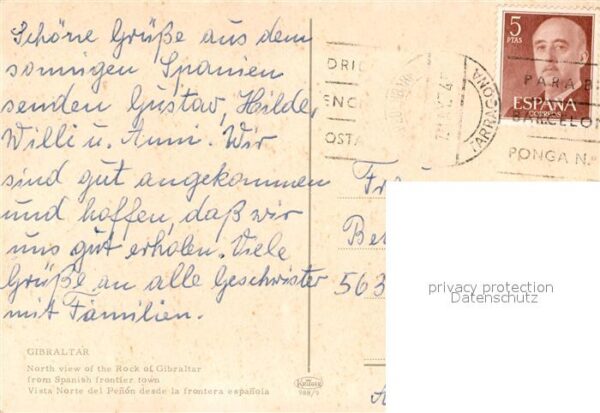 Schöne Grüße aus dem
sonnigen Spanien
senden Gustav, Hilde,
Willi u. Anni. Wir
sind gut angekommen
und hoffen, daß wir
uns gut erholen. Viele
Grüße an alle Geschwister
mit Familien.
GIBRALTAR
North view of the Rock of Gibraltar
from Spanish frontier town
Vista Norte del Peñón desde la frontera española
988/9
5
PTAS
ESPAÑA
CORREOS
TARRAGONA
PARA B
BARCELON
PONGA N.º
DRI
ENC
OSTA
Fr
Be
563
privacy protection
Datenschutz